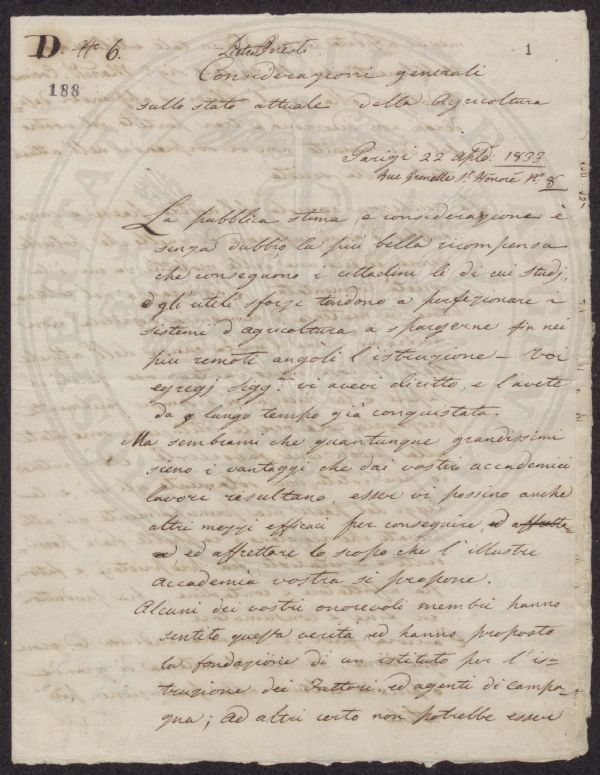 D. N.º 6.
1
188
Considerazioni generali
sullo stato attuale della agricoltura
Parigi 22 Aple: 1833
Rue Grenelle St. Honoré N.º 8
La pubblica stima e considerazione è
senza dubbio la più bella ricompensa
che conseguono i cittadini li di cui studj,
o gli utili sforzi tendono a perfezionare i
sistemi d'agricoltura, a spargerne fin nei
più remoti angoli l'istruzione – Voi
egregj Sigg.ri vi avevi diritto, e l'avete
da lungo tempo già conquistata.
Ma sembrami che quantunque grandissimi
sieno i vantaggi che dai vostri accademici
lavori resultano, esser vi possino anche
altri mezzi efficaci per conseguire, ed affretta-
ed affrettare lo scopo che l'illustre
Accademia vostra si propone.
Alcuni dei vostri onorevoli membri hanno
sentito questa verità, ed hanno proposto
la fondazione di un istituto per l'is-
truzione dei Fattori, ed agenti di campa-
gna; ad altri certo non potrebbe esser